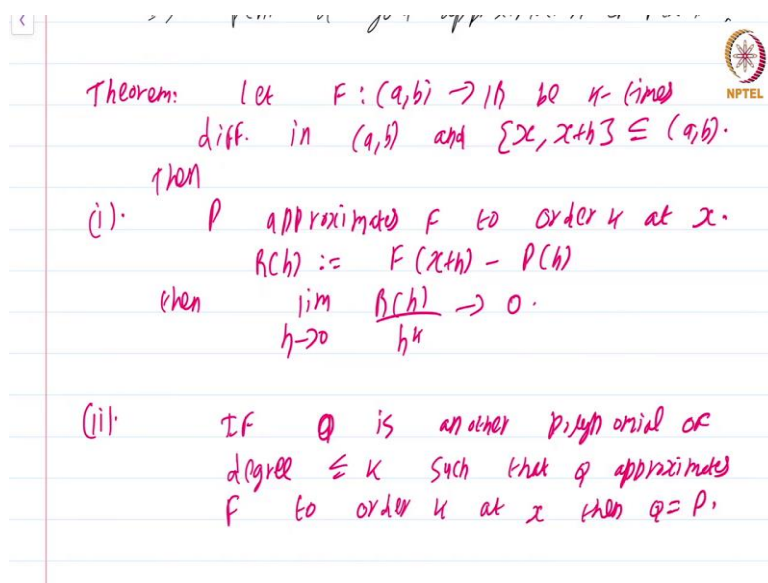 Theorem: let F : (a,b) → ℝ be k-times
NPTEL
diff. in (a,b) and {x, x+h} ⊆ (a,b).
Then
(i). P approximates F to order k at x.
R(h) := F(x+h) - P(h)
then lim R(h)/h^k → 0.
h→0
(ii). If Q is another polynomial of
degree ≤ k such that Q approximates
F to order k at x then Q = P.